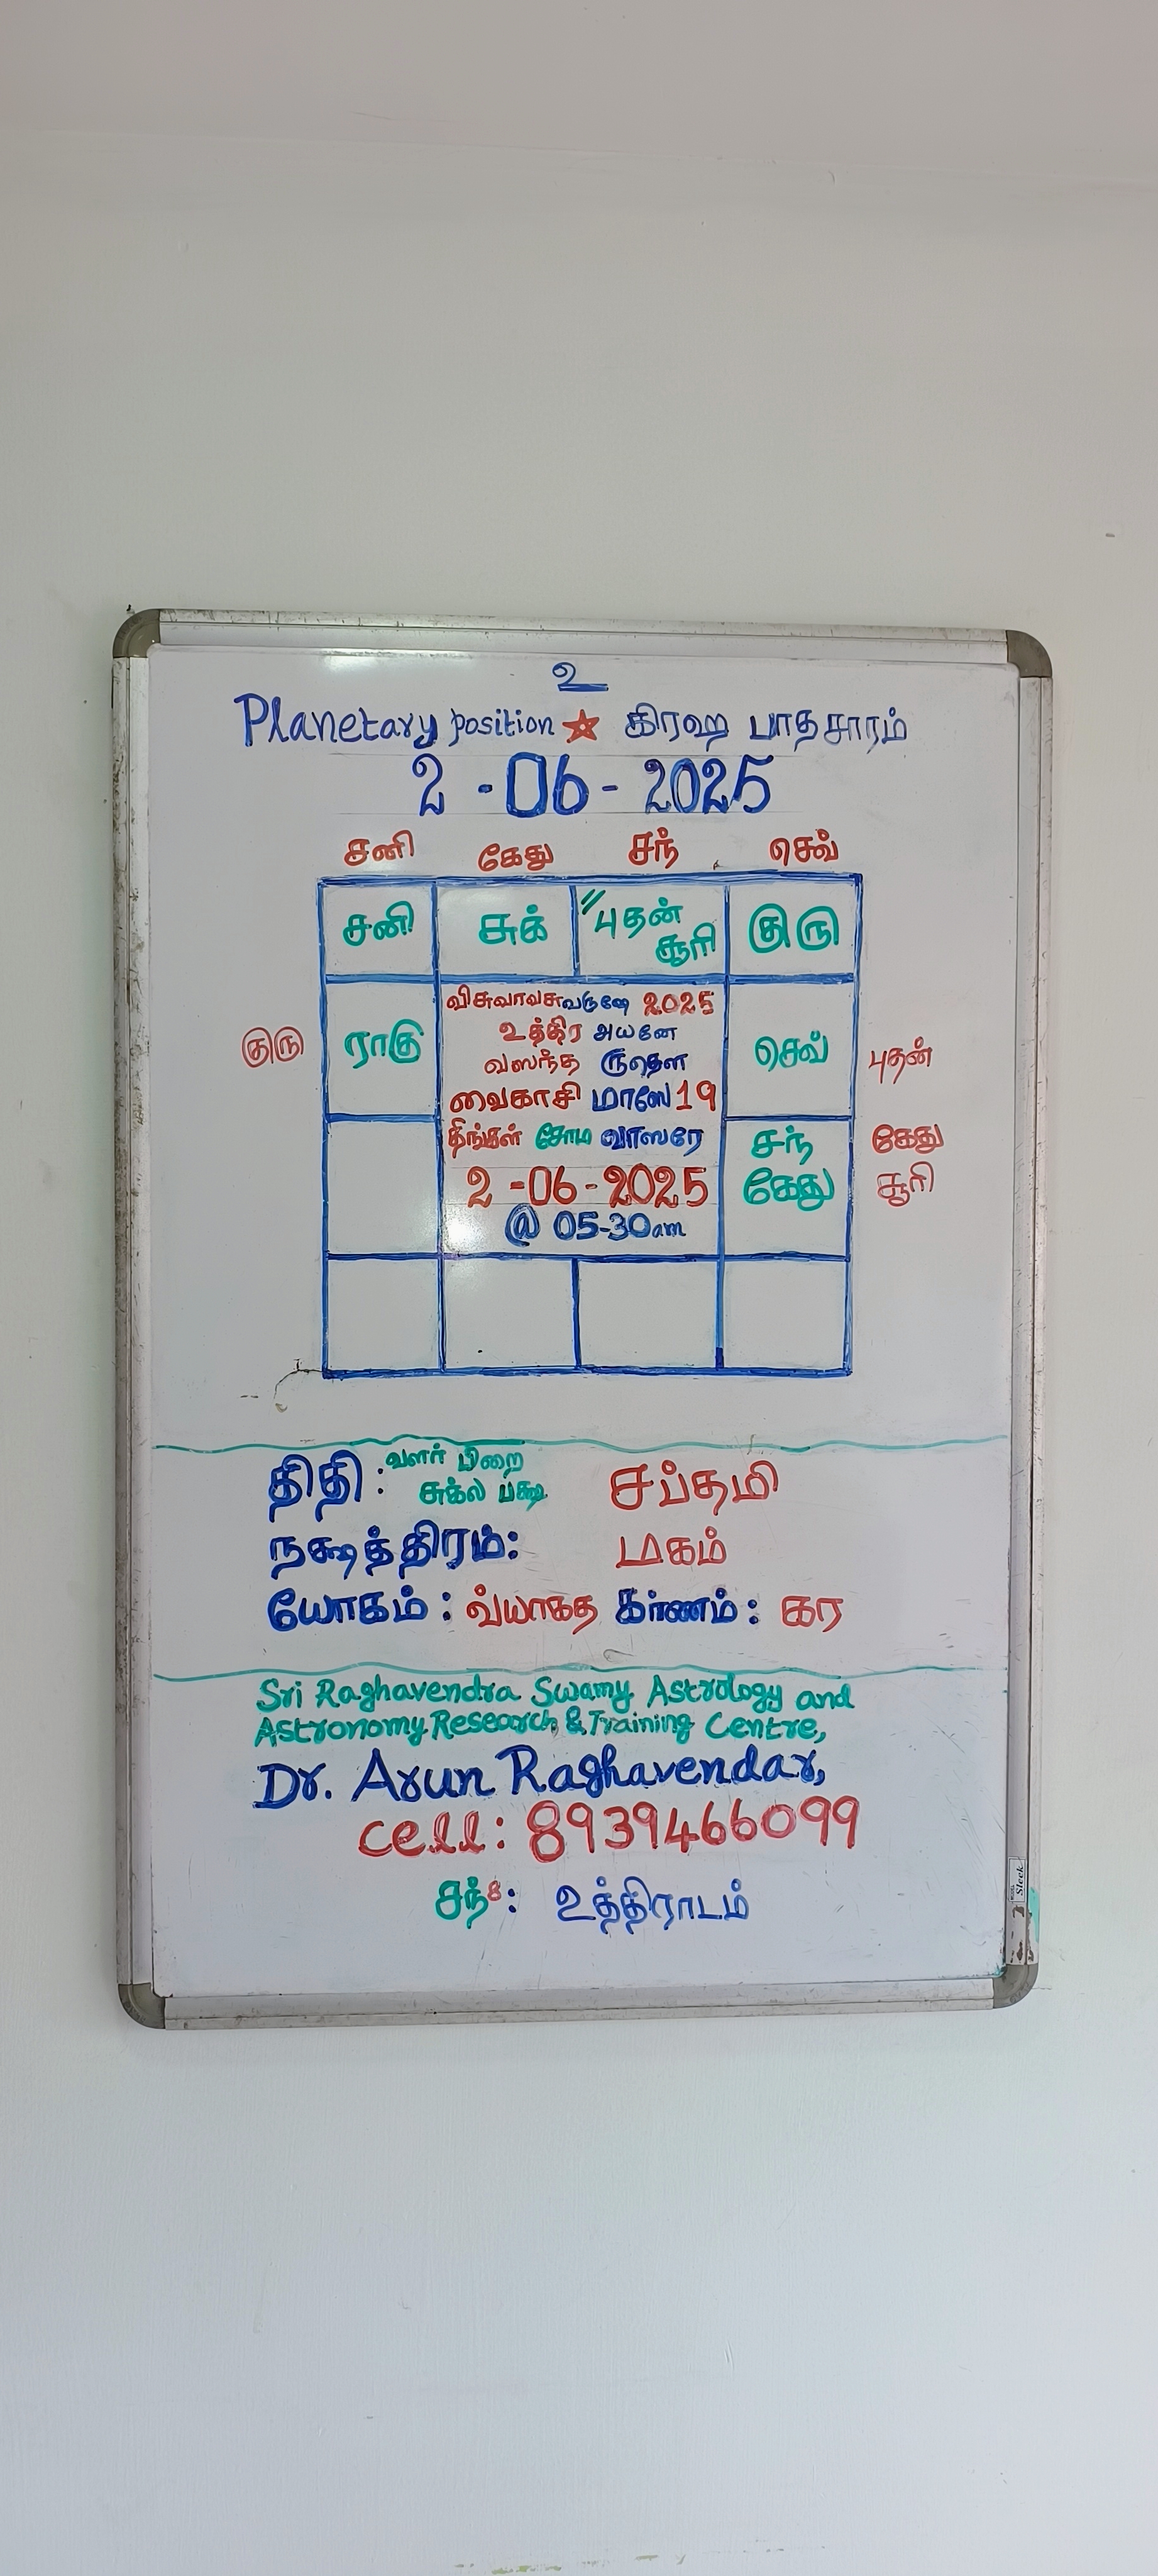 உ
Planetary position ☆ கிரஹ பாதசாரம்
2 - 06 - 2025
சனி கேது சந் செவ்
சனி சுக் "புதன் சூரி குரு
விசுவாவசுவருஷே 2025
உத்திர அயனே
குரு ராகு வஸந்த ருதௌ செவ் புதன்
வைகாசி மாஸே 19
திங்கள் சோம வாஸரே சந் கேது
2 - 06 - 2025 கேது சூரி
@ 05-30am
திதி : வளர் பிறை சப்தமி
சுக்ல பக்ஷ
நக்ஷத்திரம்: மகம்
யோகம் : வ்யாகத கர்ணம் : கர
Sri Raghavendra Swamy Astrology and
Astronomy Research & Training Centre,
Dr. Arun Raghavendar,
cell: 8939466099
சந்8: உத்திராடம்
Sleek